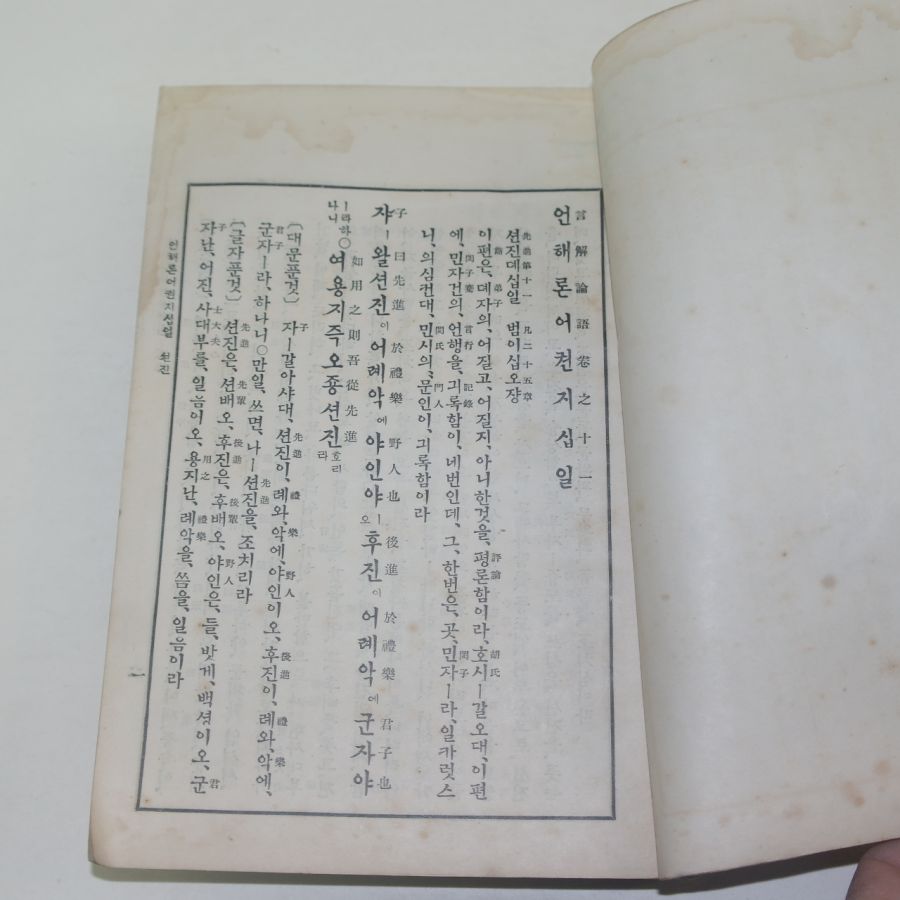 언해론어권지십일
言解論語卷之十一
션진뎨십일 범이십오쟝
先進第十一 凡二十五章
이편은、뎨자의、어질고、어질지、아니한것을、평론함이라、호시ㅣ갈오대、이편
弟子 評論 胡氏
에、민자건의、언행을、긔록함이、네번인데、그、한번은、곳、민자ㅣ라、일카럿스
閔子騫 言行 記錄 閔子
니、의심컨대、민시의、문인이、긔록함이라
閔氏 門人
쟈ㅣ왈션진이어례악에야인야ㅣ오후진이어례악에군자야
子曰先進 於禮樂 野人也 後進 於禮樂 君子也
ㅣ라하나니○여용지즉오죵션진호리라
如用之則吾從先進
〔대문푼것〕 자ㅣ갈아샤대、션진이、례와、악에、야인이오、후진이、례와、악에、
子 先進 禮 樂 野人 後進 禮 樂
군자ㅣ라、하나니○만일、쓰면、나ㅣ션진을、조치리라
君子 先進
〔글자푼것〕 션진은、션배오、후진은、후배오、야인은、들、밧게、백셩이오、군
先進 先輩 後進 後輩 野人 君
자난、어진、사대부를、일음이오、용지난、례악을、씀을、일음이라
子 士大夫 用之 禮樂
언해론어권지십일 션진
一